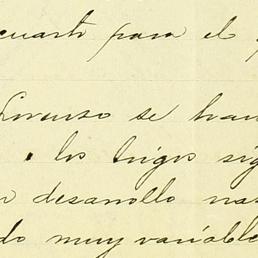 cuarto para el
Lorenzo se han
. los trigos sig
desarrollo na
do muy variable